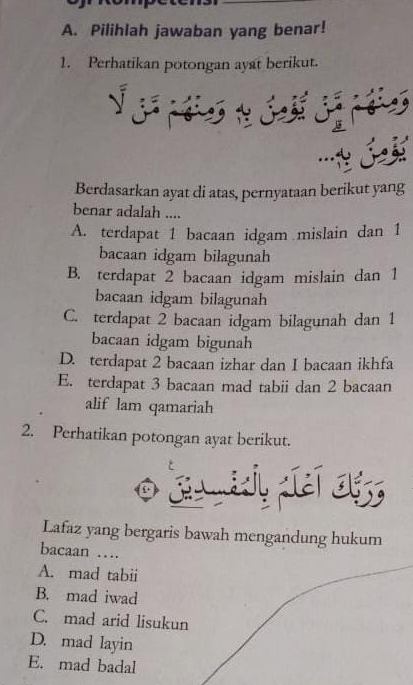 A. Pilihlah jawaban yang benar!
1. Perhatikan potongan ayat berikut.
وَمِنْهُمْ مَّنْ يُّؤْمِنُ بِهٖ وَمِنْهُمْ مَّنْ لَّا
يُؤْمِنُ بِهٖ...
Berdasarkan ayat di atas, pernyataan berikut yang
benar adalah ....
A. terdapat 1 bacaan idgam mislain dan 1
bacaan idgam bilagunah
B. terdapat 2 bacaan idgam mislain dan 1
bacaan idgam bilagunah
C. terdapat 2 bacaan idgam bilagunah dan 1
bacaan idgam bigunah
D. terdapat 2 bacaan izhar dan I bacaan ikhfa
E. terdapat 3 bacaan mad tabii dan 2 bacaan
alif lam qamariah
2. Perhatikan potongan ayat berikut.
وَرَبُّكَ اَعْلَمُ بِالْمُفْسِدِيْنَ ࣖ ٤٠
Lafaz yang bergaris bawah mengandung hukum
bacaan ....
A. mad tabii
B. mad iwad
C. mad arid lisukun
D. mad layin
E. mad badal